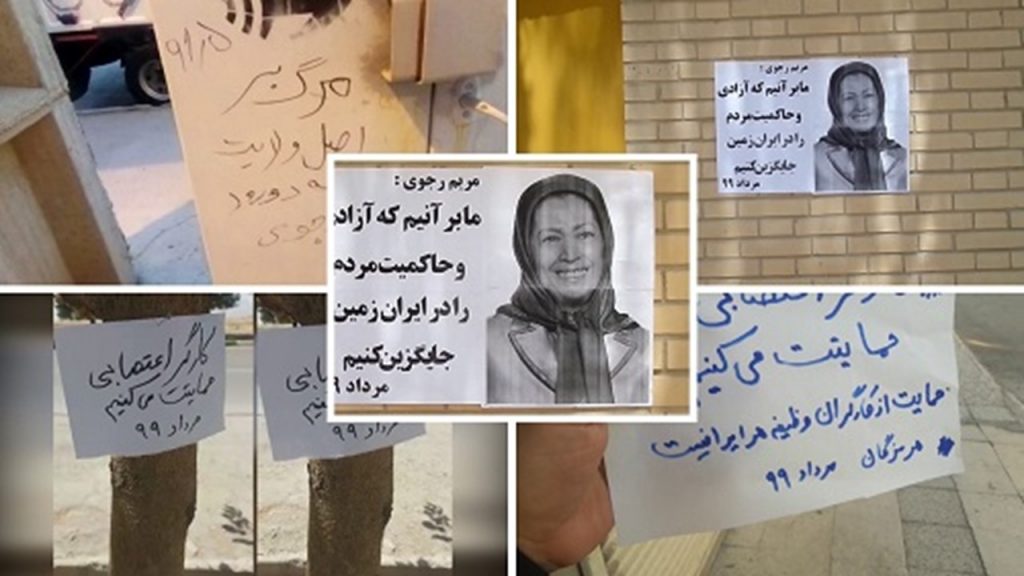 مرگ بر
اصل ولایت
درود
مریم رجوی :
ما بر آنیم که آزادی
و حاکمیت مردم
را در ایران زمین
جایگزین کنیم
مرداد ۹۹
مریم رجوی :
ما بر آنیم که آزادی
و حاکمیت مردم
را در ایران زمین
جایگزین کنیم
مرداد ۹
کارگر اعتصابی
حمایتت می کنیم
مرداد ۹۹
مرداد ۹۹
حمایتت می کنیم
حمایت از کارگران وظیفه هر ایرانیست
هرمزگان مرداد ۹۹